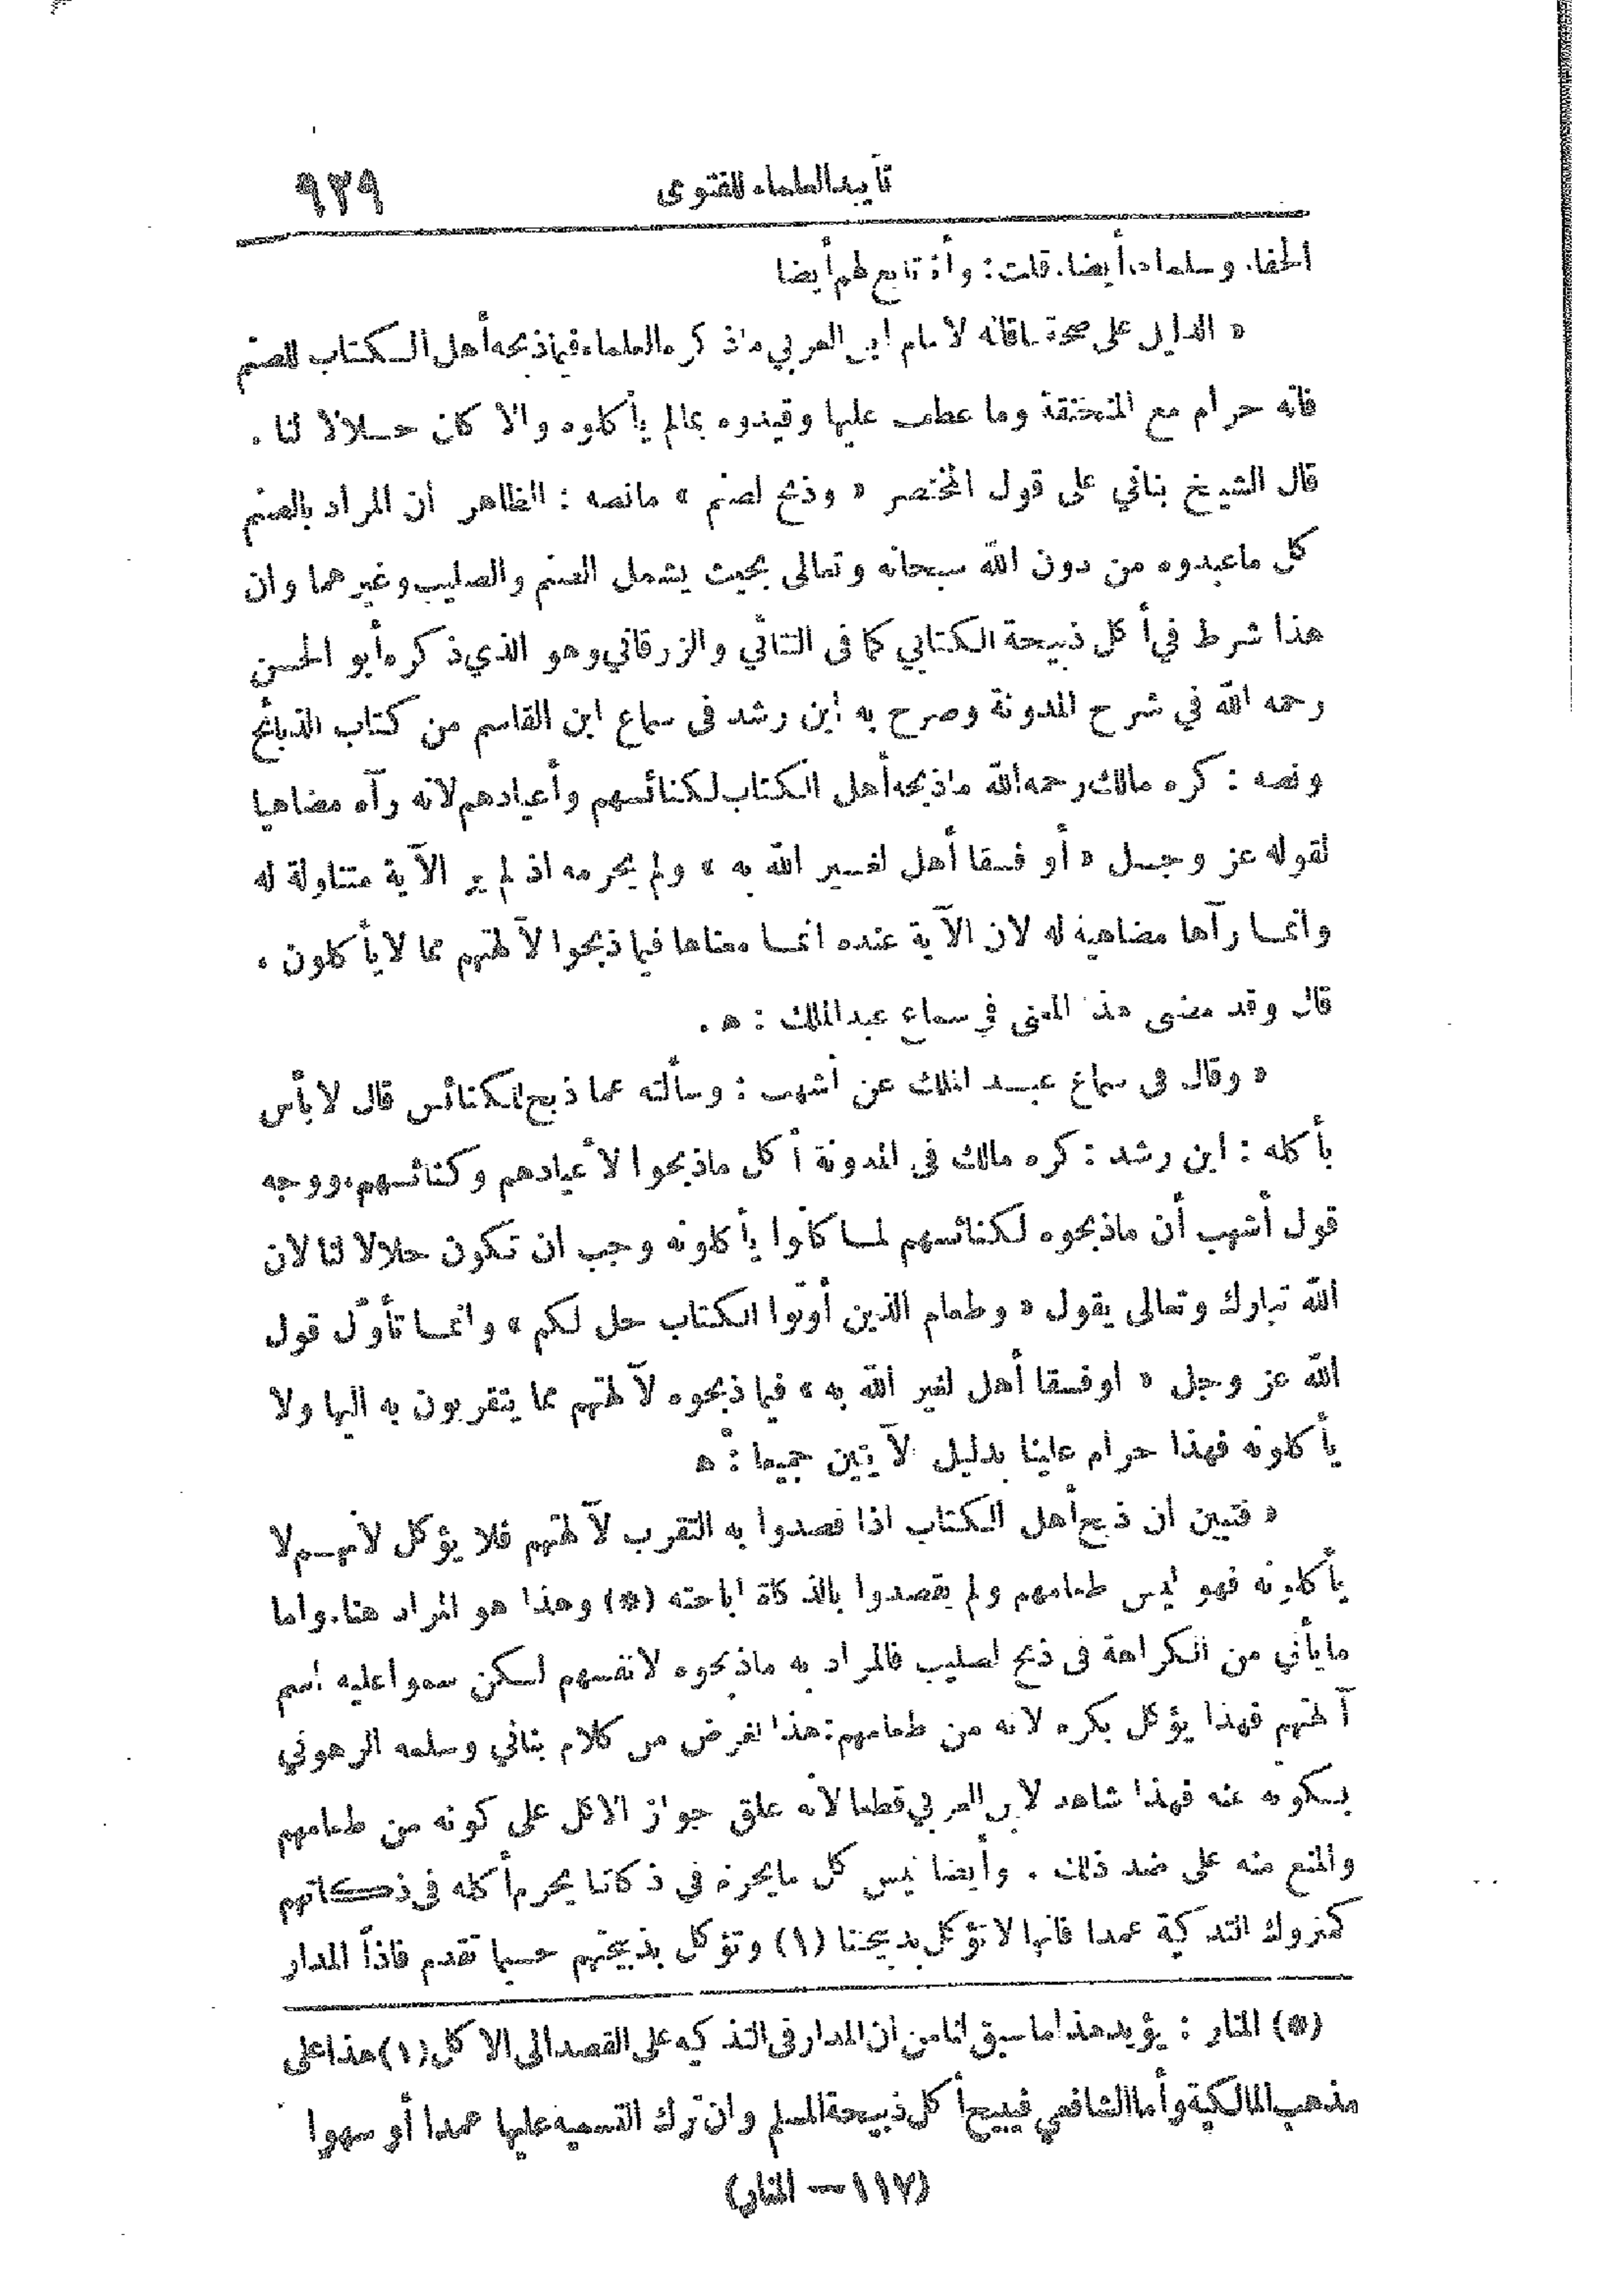 تأييد العلماء للفتوى ٩٢٩
الحفار وسلماه أيضا. قلت: وأنا تابع لهم أيضا
« الدليل على صحة ماقاله الامام ابن العربي ماذكره العلماء فيما ذبحه أهل الكتاب للصنم
فانه حرام مع المنخنقة وما عطف عليها وقيدوه بمالم يأكلوه والا كان حلالا لنا .
قال الشيخ بناني على قول المختصر « وذبح لصنم » مانصه : الظاهر أن المراد بالصنم
كل ماعبدوه من دون الله سبحانه وتعالى بحيث يشمل الصنم والصليب وغيرهما وان
هذا شرط في أكل ذبيحة الكتابي كما فى التتائي والزرقاني وهو الذي ذكره أبو الحسن
رحمه الله في شرح المدونة وصرح به ابن رشد فى سماع ابن القاسم من كتاب الذبائح
ونصه : كره مالك رحمه الله ماذبحه أهل الكتاب لكنائسهم وأعيادهم لانه رآه مضاهيا
لقوله عز وجل « أو فسقا أهل لغير الله به » ولم يحرمه اذ لم ير الآية متناولة له
وانما رآها مضاهية له لان الآية عنده انما معناها فيما ذبحوا لآلهتهم مما لا يأكلون .
قال وقد مضى هذا المعنى في سماع عبدالملك : ه .
« وقال فى سماع عبد الملك عن أشهب : وسألته عما ذبح للكنائس قال لا بأس
بأكله : ابن رشد : كره مالك فى المدونة أكل ماذبحوا لأعيادهم وكنائسهم، ووجه
قول أشهب أن ماذبحوه لكنائسهم لما كانوا يأكلونه وجب ان تكون حلالا لنا لان
الله تبارك وتعالى يقول « وطعام الذين أوتوا الكتاب حل لكم » وانما تأوّل قول
الله عز وجل « اوفسقا أهل لغير الله به » فيما ذبحوه لآلهتهم مما يتقربون به اليها ولا
يأكلونه فهذا حرام علينا بدليل الآيتين جميعا : ه
« فتبين ان ذبح أهل الكتاب اذا قصدوا به التقرب لآلهتهم فلا يؤكل لأنهم لا
يأكلونه فهو ليس طعامهم ولم يقصدوا بالذكاة اباحته (*) وهذا هو المراد هنا. واما
مايأتي من الكراهة فى ذبح لصليب فالمراد به ماذبحوه لانفسهم لكن سموا عليه اسم
آلهتهم فهذا يؤكل بكره لانه من طعامهم : هذا الغرض من كلام بناني وسلمه الرهوني
بسكوته عنه فهذا شاهد لابن العربي قطعا لأنه علق جواز الاكل على كونه من طعامهم
والمنع منه على ضد ذلك . وأيضا ليس كل مايحرم في ذكاتنا يحرم أكله فى ذكاتهم
كمتروك التذكية عمدا فانها لا تؤكل بذبيحتنا (١) وتؤكل بذبيحتهم حسبما تقدم فاذاً المدار
(*) المنار : يؤيد هذا ما سبق لنا من ان المدار فى التذكيه على القصد الى الاكل (١) هذا على
مذهب المالكية وأما الشافعي فيبيح أكل ذبيحة المسلم وان ترك التسميه عليها عمدا أو سهوا
(١١٧ — المنار)